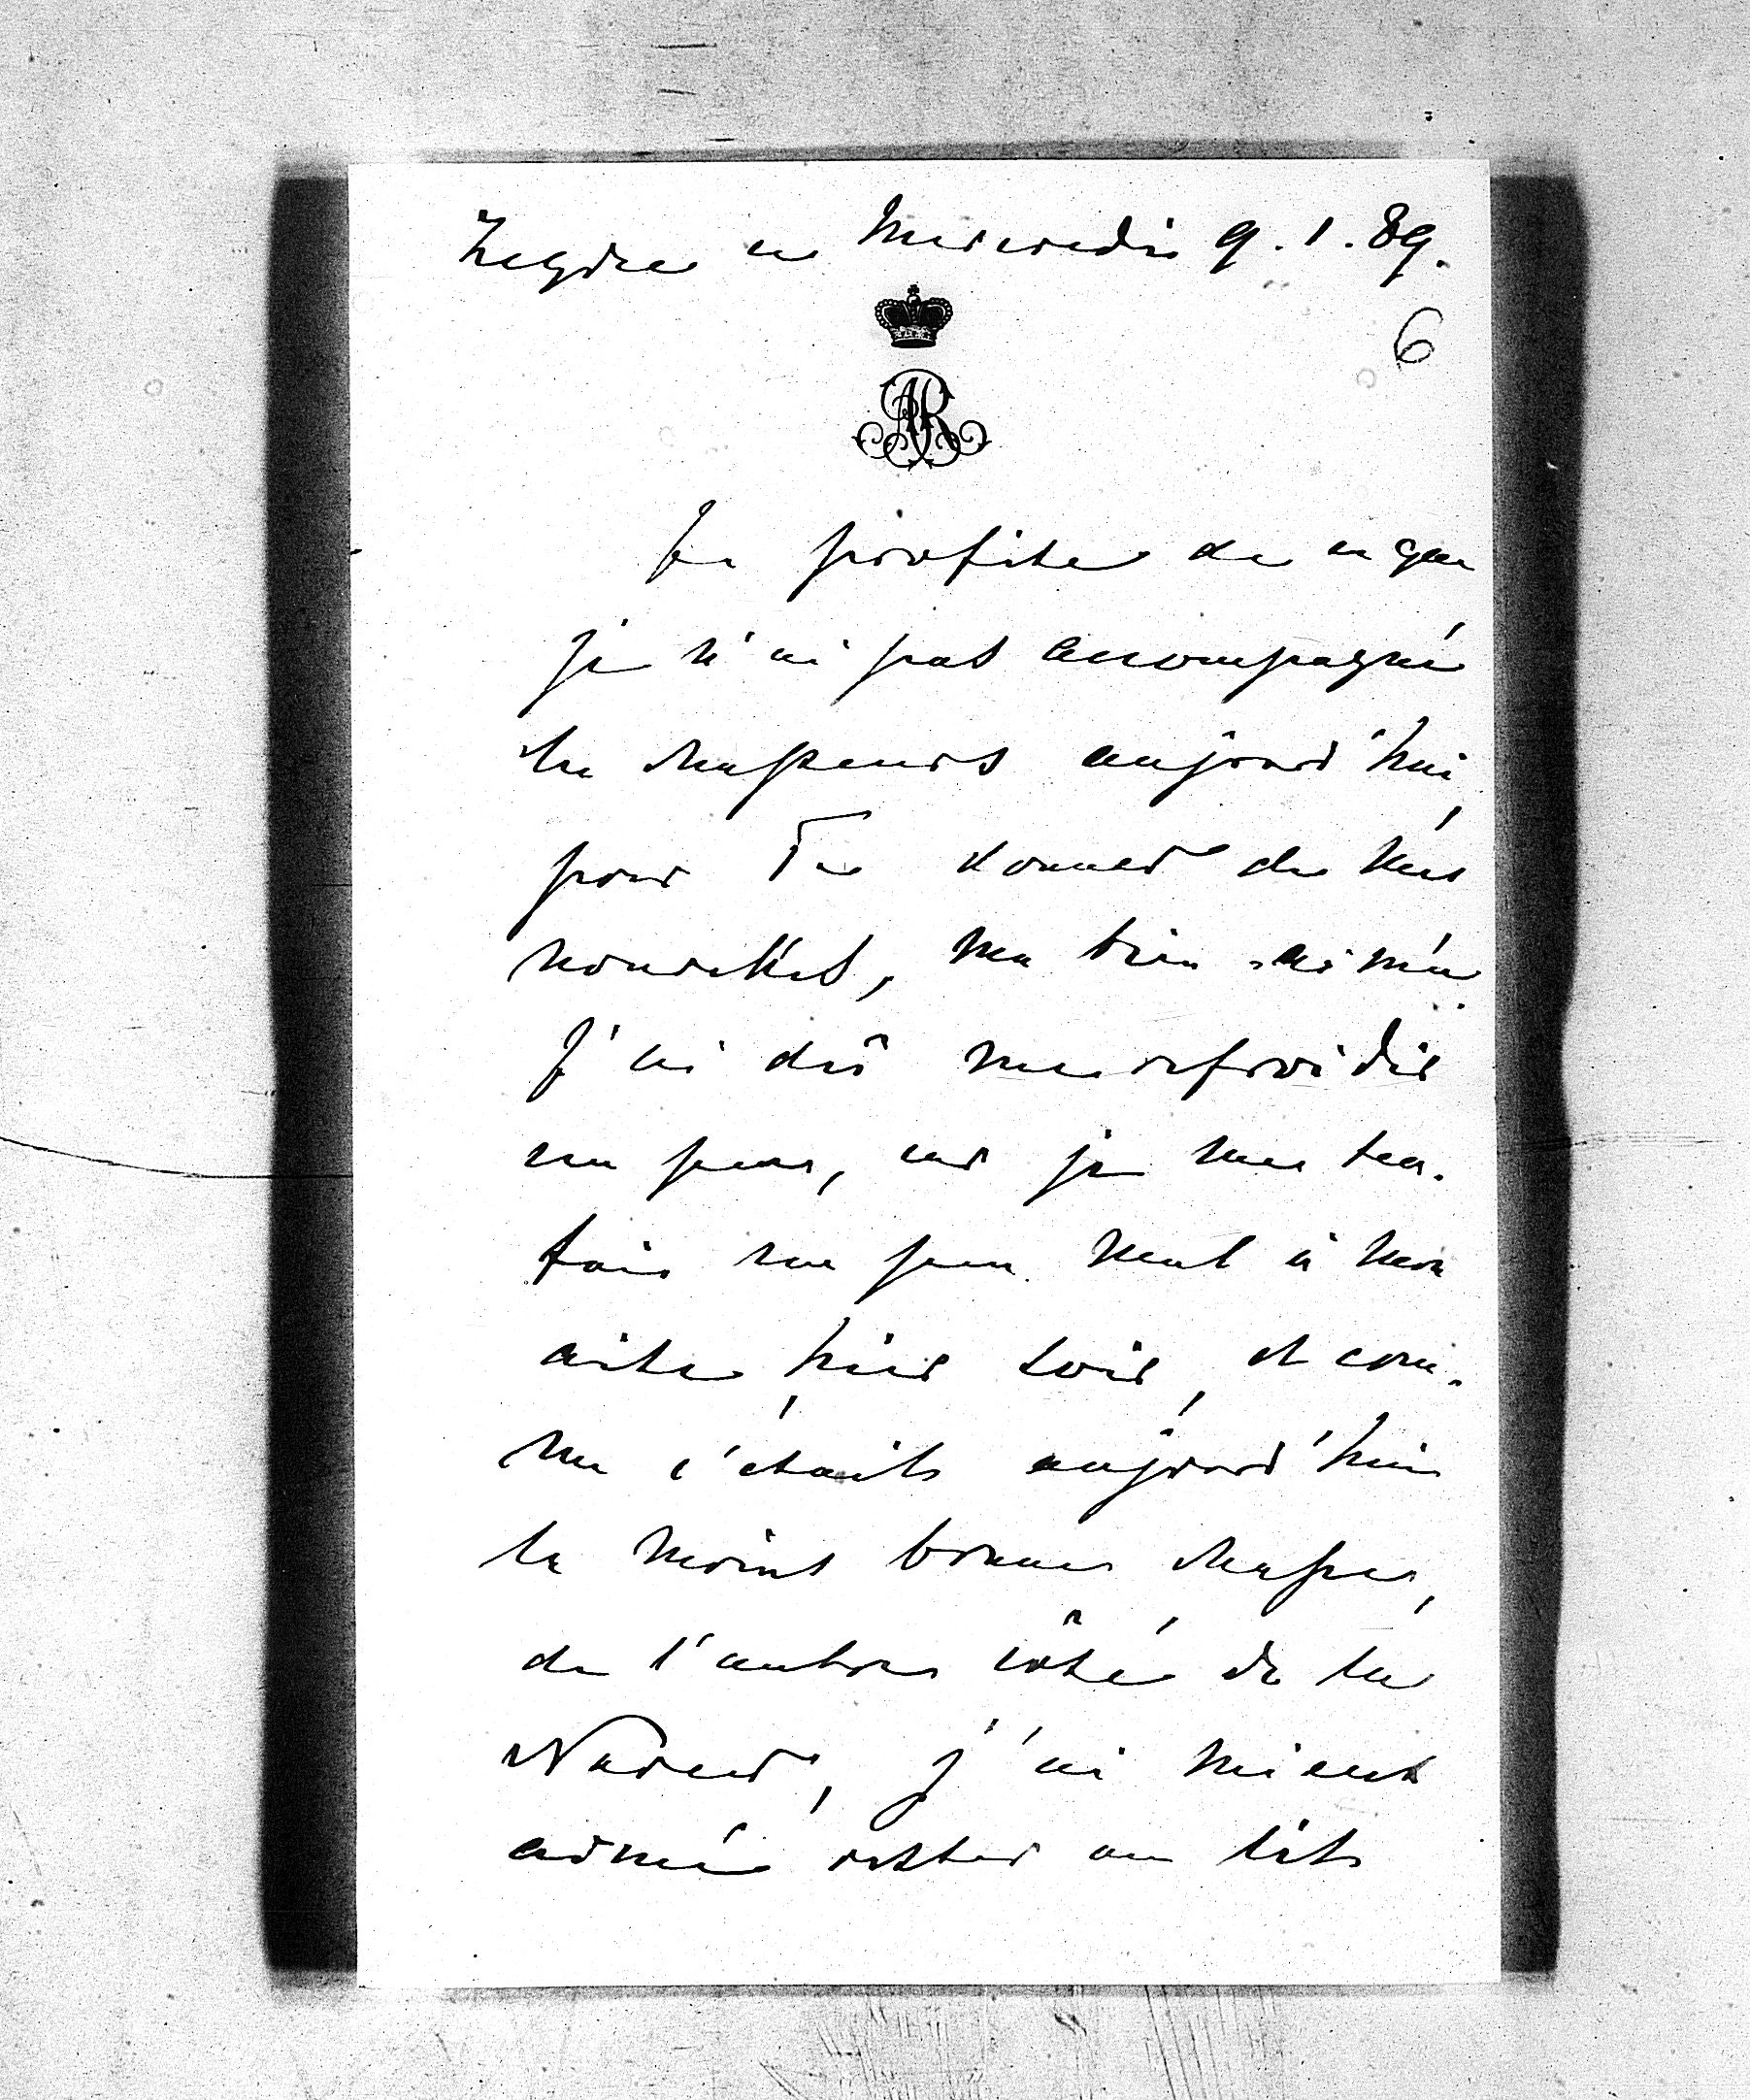 Zegrze ce Mercredi 9.1.89.
6
AR
Je profite de ce que
je n'ai pas accompagné
les chasseurs aujourd'hui,
pour Te donner de mes
nouvelles, ma bien-aimée.
J'ai dû me refroidir
un peu, car je me sen-
tais un peu mal à mon
aise, hier soir, et com-
me c'était aujourd'hui
la moins bonne chasse,
de l'autre côté de la
Narew, j'ai mieux
aimé rester au lit